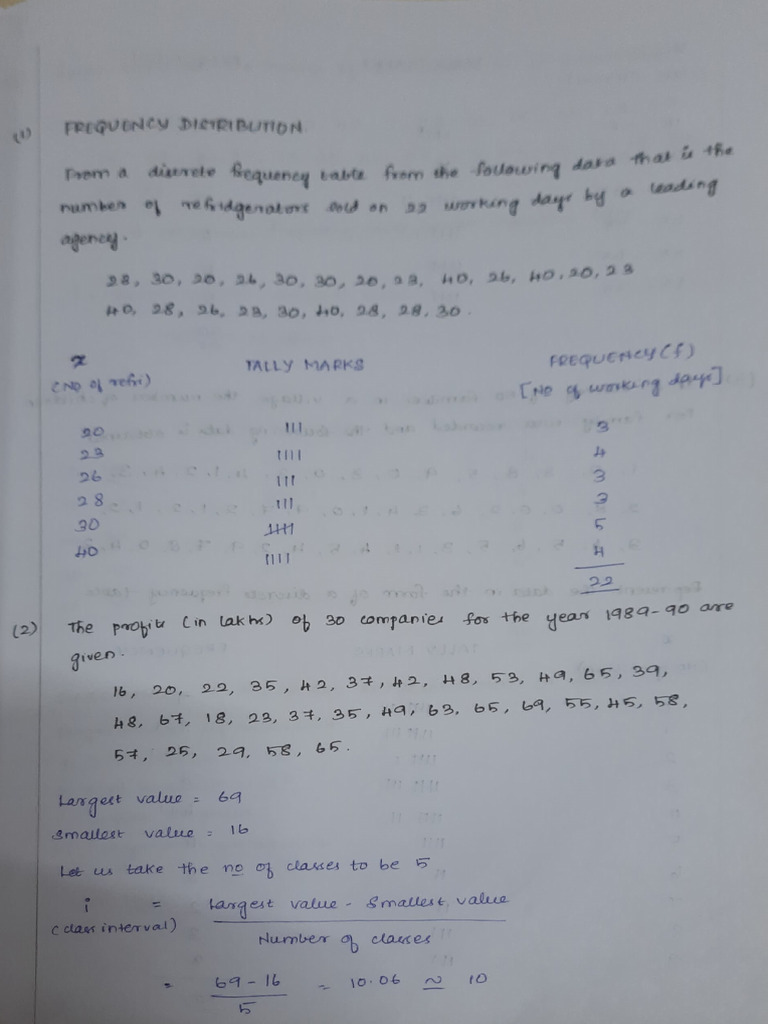 (1) FREQUENCY DISTRIBUTION
From a discrete frequency table from the following data that is the
number of refridgerators sold on 22 working days by a leading
agency.
28, 30, 20, 26, 30, 30, 20, 23, 40, 26, 40, 20, 23
40, 28, 26, 23, 30, 40, 28, 28, 30.
x TALLY MARKS FREQUENCY (f)
(NO of refri) [No of working days]
20 III 3
23 IIII 4
26 III 3
28 III 3
30 IIII 5
40 IIII 4
22
(2) The profits (in lakhs) of 30 companies for the year 1989-90 are
given.
16, 20, 22, 35, 42, 37, 42, 48, 53, 49, 65, 39,
48, 67, 18, 23, 37, 35, 49, 63, 65, 69, 55, 45, 58,
57, 25, 29, 58, 65.
Largest value = 69
Smallest value = 16
Let us take the no of classes to be 5
i = Largest value - Smallest value
(class interval) Number of classes
= 69-16 = 10.06 ≃ 10
5